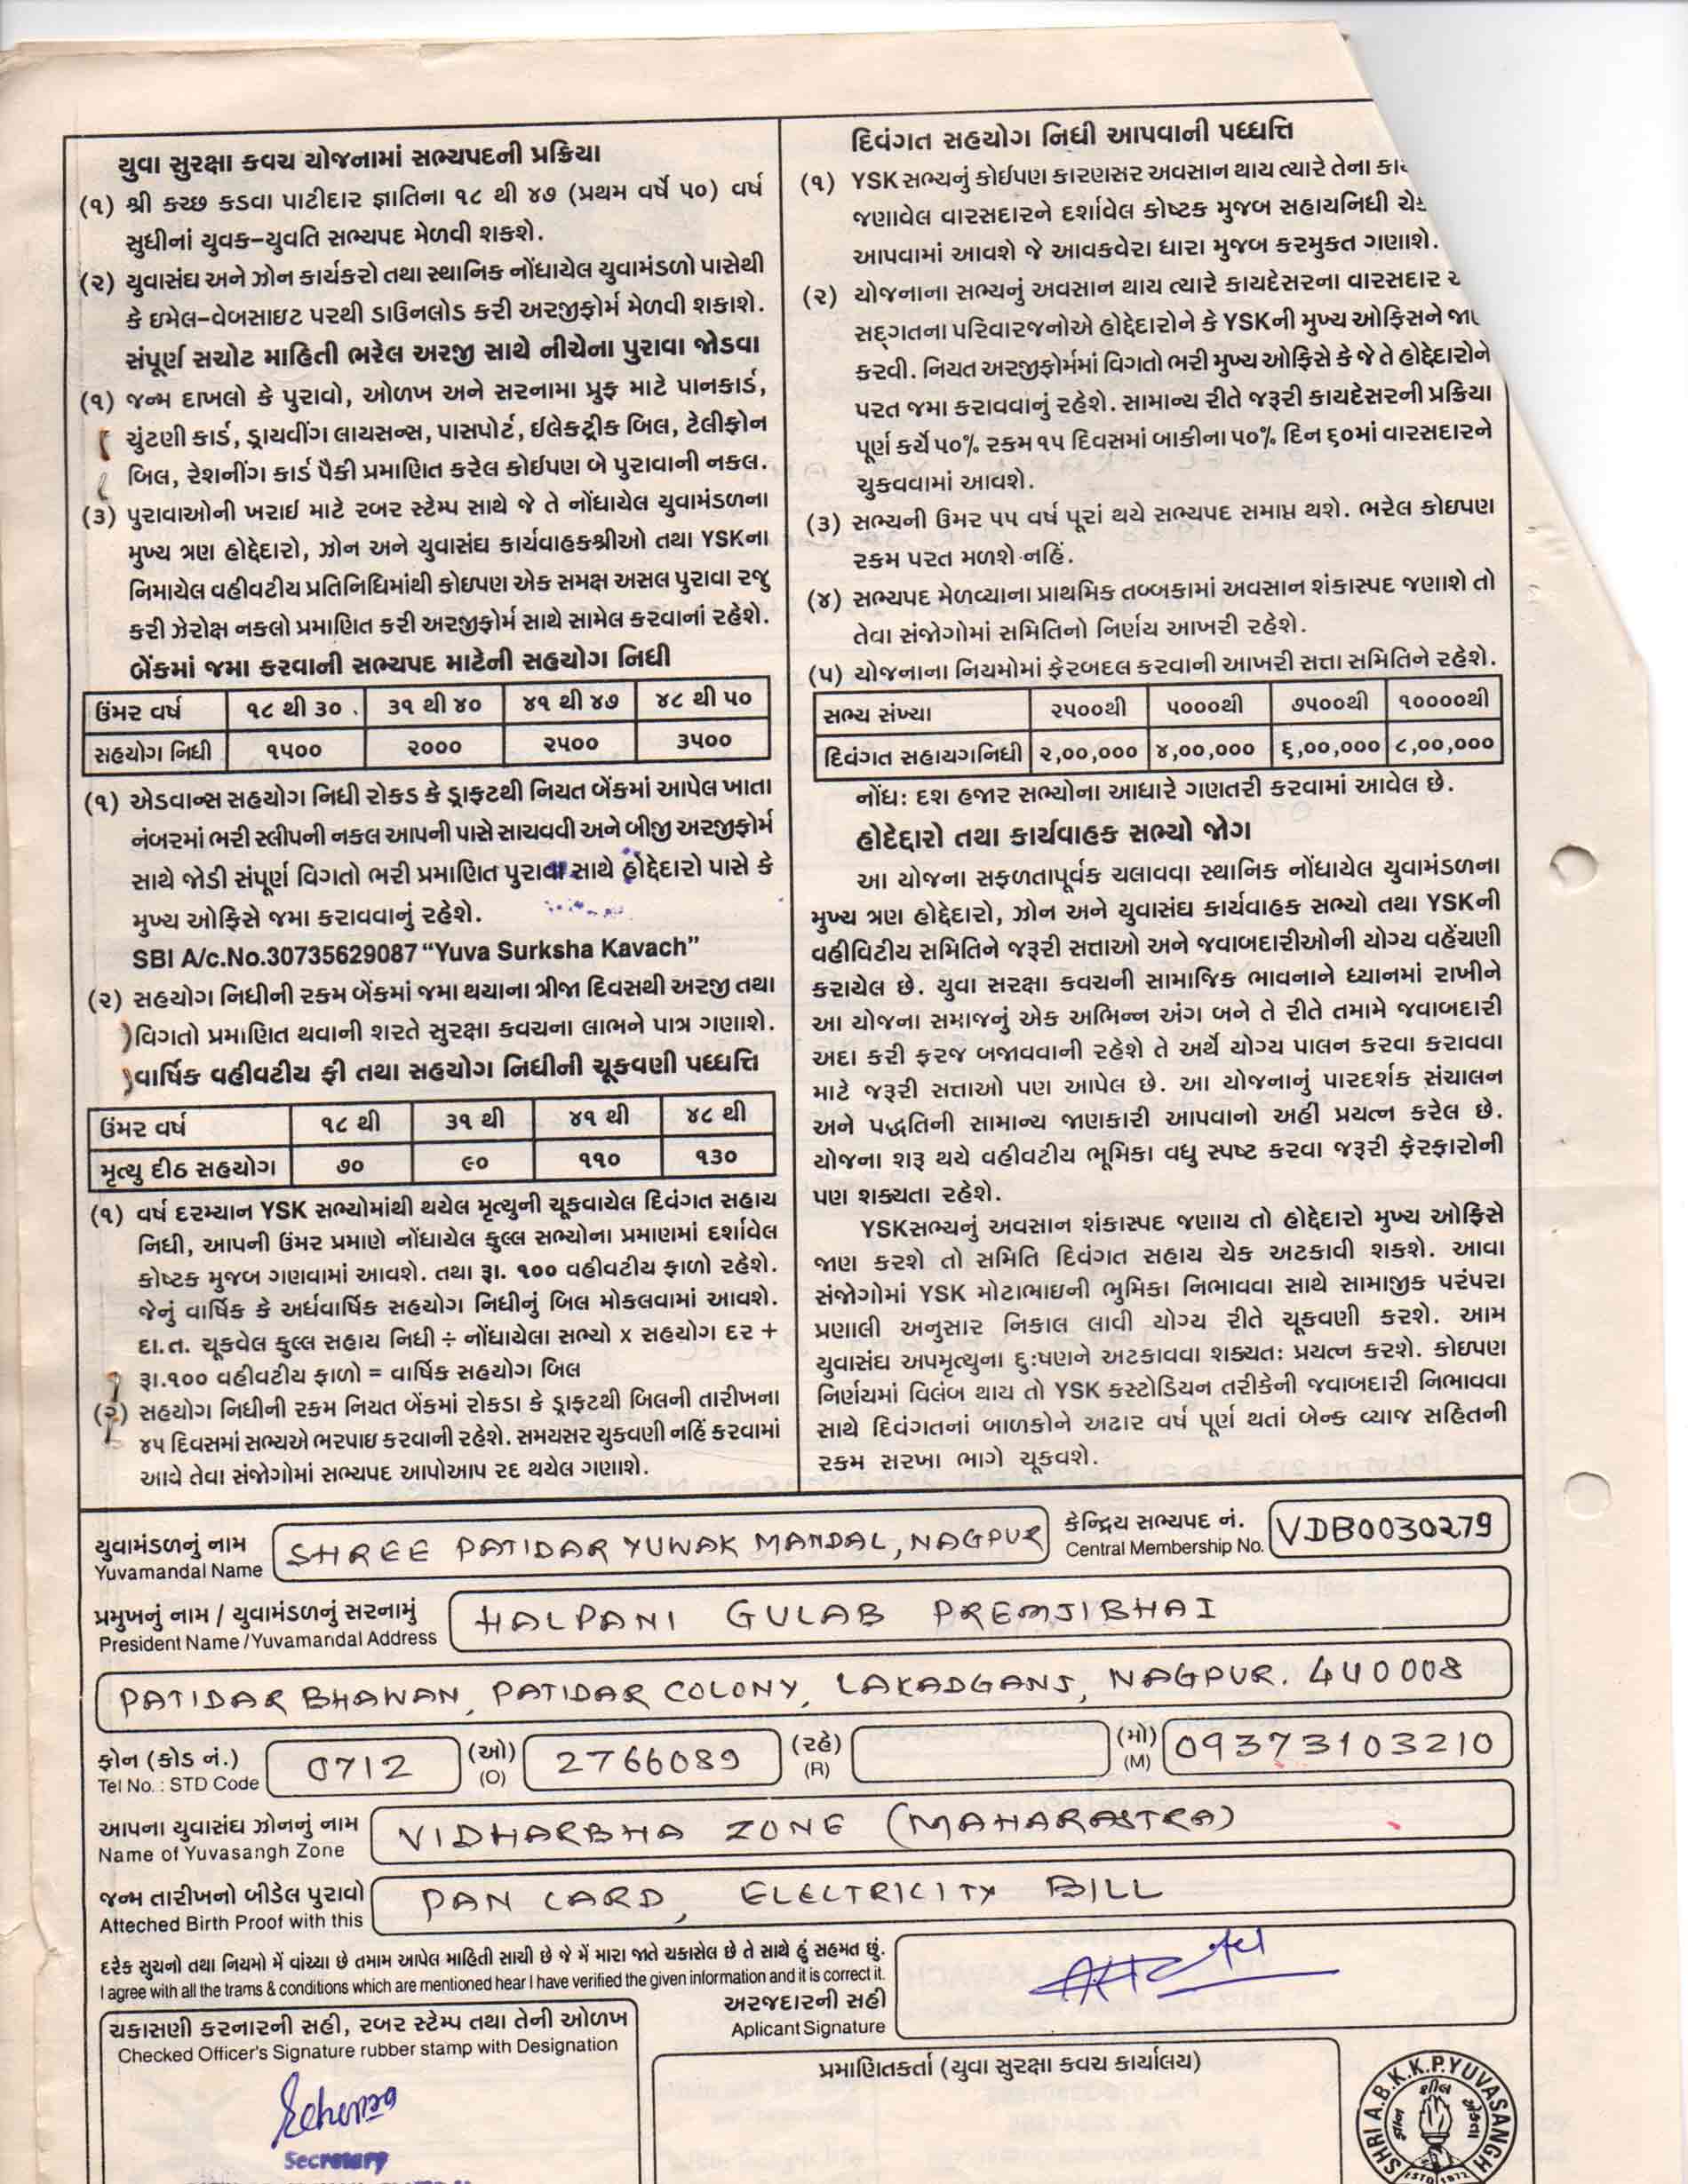 યુવા સુરક્ષા કવચ યોજનામાં સભ્યપદની પ્રક્રિયા
(૧) શ્રી કચ્છ કડવા પાટીદાર જ્ઞાતિના ૧૮ થી ૪૭ (પ્રથમ વર્ષે ૫૦) વર્ષ
સુધીનાં યુવક-યુવતિ સભ્યપદ મેળવી શકશે.
(૨) યુવાસંઘ અને ઝોન કાર્યકરો તથા સ્થાનિક નોંધાયેલ યુવામંડળો પાસેથી
કે ઇમેલ-વેબસાઇટ પરથી ડાઉનલોડ કરી અરજીફોર્મ મેળવી શકાશે.
સંપૂર્ણ સચોટ માહિતી ભરેલ અરજી સાથે નીચેના પુરાવા જોડવા
(૧) જન્મ દાખલો કે પુરાવો, ઓળખ અને સરનામા પ્રુફ માટે પાનકાર્ડ,
ચુંટણી કાર્ડ, ડ્રાયવીંગ લાયસન્સ, પાસપોર્ટ, ઈલેકટ્રીક બિલ, ટેલીફોન
બિલ, રેશનીંગ કાર્ડ પૈકી પ્રમાણિત કરેલ કોઈપણ બે પુરાવાની નકલ.
(૩) પુરાવાઓની ખરાઇ માટે રબર સ્ટેમ્પ સાથે જે તે નોંધાયેલ યુવામંડળના
મુખ્ય ત્રણ હોદ્દેદારો, ઝોન અને યુવાસંઘ કાર્યવાહકશ્રીઓ તથા YSKના
નિમાયેલ વહીવટીય પ્રતિનિધિમાંથી કોઇપણ એક સમક્ષ અસલ પુરાવા રજુ
કરી ઝેરોક્ષ નકલો પ્રમાણિત કરી અરજીફોર્મ સાથે સામેલ કરવાનાં રહેશે.
બેંકમાં જમા કરવાની સભ્યપદ માટેની સહયોગ નિધી
ઉંમર વર્ષ ૧૮ થી ૩૦ ૩૧ થી ૪૦ ૪૧ થી ૪૭ ૪૮ થી ૫૦
સહયોગ નિધી ૧૫૦૦ ૨૦૦૦ ૨૫૦૦ ૩૫૦૦
(૧) એડવાન્સ સહયોગ નિધી રોકડ કે ડ્રાફટથી નિયત બેંકમાં આપેલ ખાતા
નંબરમાં ભરી સ્લીપની નકલ આપની પાસે સાચવવી અને બીજી અરજીફોર્મ
સાથે જોડી સંપૂર્ણ વિગતો ભરી પ્રમાણિત પુરાવા સાથે હોદ્દેદારો પાસે કે
મુખ્ય ઓફિસે જમા કરાવવાનું રહેશે.
SBI A/c.No.30735629087 “Yuva Surksha Kavach”
(૨) સહયોગ નિધીની રકમ બેંકમાં જમા થયાના ત્રીજા દિવસથી અરજી તથા
વિગતો પ્રમાણિત થવાની શરતે સુરક્ષા કવચના લાભને પાત્ર ગણાશે.
વાર્ષિક વહીવટીય ફી તથા સહયોગ નિધીની ચૂકવણી પધ્ધત્તિ
ઉંમર વર્ષ ૧૮ થી ૩૧ થી ૪૧ થી ૪૮ થી
મૃત્યુ દીઠ સહયોગ ૭૦ ૯૦ ૧૧૦ ૧૩૦
(૧) વર્ષ દરમ્યાન YSK સભ્યોમાંથી થયેલ મૃત્યુની ચૂકવાયેલ દિવંગત સહાય
નિધી, આપની ઉંમર પ્રમાણે નોંધાયેલ કુલ્લ સભ્યોના પ્રમાણમાં દર્શાવેલ
કોષ્ટક મુજબ ગણવામાં આવશે. તથા રૂા. ૧૦૦ વહીવટીય ફાળો રહેશે.
જેનું વાર્ષિક કે અર્ધવાર્ષિક સહયોગ નિધીનું બિલ મોકલવામાં આવશે.
દા.ત. ચૂકવેલ કુલ્લ સહાય નિધી ÷ નોંધાયેલા સભ્યો x સહયોગ દર +
રૂા.૧૦૦ વહીવટીય ફાળો = વાર્ષિક સહયોગ બિલ
(૨) સહયોગ નિધીની રકમ નિયત બેંકમાં રોકડા કે ડ્રાફટથી બિલની તારીખના
૪૫ દિવસમાં સભ્યએ ભરપાઇ કરવાની રહેશે. સમયસર ચુકવણી નહિં કરવામાં
આવે તેવા સંજોગોમાં સભ્યપદ આપોઆપ રદ થયેલ ગણાશે.
દિવંગત સહયોગ નિધી આપવાની પધ્ધત્તિ
(૧) YSK સભ્યનું કોઈપણ કારણસર અવસાન થાય ત્યારે તેના
જણાવેલ વારસદારને દર્શાવેલ કોષ્ટક મુજબ સહાયનિધી
આપવામાં આવશે જે આવકવેરા ધારા મુજબ કરમુક્ત ગણાશે.
(૨) યોજનાના સભ્યનું અવસાન થાય ત્યારે કાયદેસરના વારસદાર
સદ્ગતના પરિવારજનોએ હોદ્દેદારોને કે YSKની મુખ્ય ઓફિસને
કરવી. નિયત અરજીફોર્મમાં વિગતો ભરી મુખ્ય ઓફિસે કે જે તે હોદ્દેદારોને
પરત જમા કરાવવાનું રહેશે. સામાન્ય રીતે જરૂરી કાયદેસરની પ્રક્રિયા
પૂર્ણ કર્યે ૫૦% રકમ ૧૫ દિવસમાં બાકીના ૫૦% દિન ૬૦માં વારસદારને
ચુકવવામાં આવશે.
(૩) સભ્યની ઉમર ૫૫ વર્ષ પૂરાં થયે સભ્યપદ સમાપ્ત થશે. ભરેલ કોઇપણ
રકમ પરત મળશે નહિં.
(૪) સભ્યપદ મેળવ્યાના પ્રાથમિક તબ્બકામાં અવસાન શંકાસ્પદ જણાશે તો
તેવા સંજોગોમાં સમિતિનો નિર્ણય આખરી રહેશે.
(૫) યોજનાના નિયમોમાં ફેરબદલ કરવાની આખરી સત્તા સમિતિને રહેશે.
સભ્ય સંખ્યા ૨૫૦૦થી ૫૦૦૦થી ૭૫૦૦થી ૧૦૦૦૦થી
દિવંગત સહાયગનિધી ૨,૦૦,૦૦૦ ૪,૦૦,૦૦૦ ૬,૦૦,૦૦૦ ૮,૦૦,૦૦૦
નોંધઃ દશ હજાર સભ્યોના આધારે ગણતરી કરવામાં આવેલ છે.
હોદેદ્દારો તથા કાર્યવાહક સભ્યો જોગ
આ યોજના સફળતાપૂર્વક ચલાવવા સ્થાનિક નોંધાયેલ યુવામંડળના
મુખ્ય ત્રણ હોદ્દેદારો, ઝોન અને યુવાસંઘ કાર્યવાહક સભ્યો તથા YSKની
વહીવિટીય સમિતિને જરૂરી સત્તાઓ અને જવાબદારીઓની યોગ્ય વહેંચણી
કરાયેલ છે. યુવા સરક્ષા કવચની સામાજિક ભાવનાને ધ્યાનમાં રાખીને
આ યોજના સમાજનું એક અભિન્ન અંગ બને તે રીતે તમામે જવાબદારી
અદા કરી ફરજ બજાવવાની રહેશે તે અર્થે યોગ્ય પાલન કરવા કરાવવા
માટે જરૂરી સત્તાઓ પણ આપેલ છે. આ યોજનાનું પારદર્શક સંચાલન
અને પદ્ધતિની સામાન્ય જાણકારી આપવાનો અહીં પ્રયત્ન કરેલ છે.
યોજના શરૂ થયે વહીવટીય ભૂમિકા વધુ સ્પષ્ટ કરવા જરૂરી ફેરફારોની
પણ શક્યતા રહેશે.
YSKસભ્યનું અવસાન શંકાસ્પદ જણાય તો હોદ્દેદારો મુખ્ય ઓફિસે
જાણ કરશે તો સમિતિ દિવંગત સહાય ચેક અટકાવી શકશે. આવા
સંજોગોમાં YSK મોટાભાઇની ભુમિકા નિભાવવા સાથે સામાજીક પરંપરા
પ્રણાલી અનુસાર નિકાલ લાવી યોગ્ય રીતે ચૂકવણી કરશે. આમ
યુવાસંઘ અપમૃત્યુના દુઃષણને અટકાવવા શક્યતઃ પ્રયત્ન કરશે. કોઇપણ
નિર્ણયમાં વિલંબ થાય તો YSK કસ્ટોડિયન તરીકેની જવાબદારી નિભાવવા
સાથે દિવંગતનાં બાળકોને અઢાર વર્ષ પૂર્ણ થતાં બેન્ક વ્યાજ સહિતની
રકમ સરખા ભાગે ચૂકવશે.
યુવામંડળનું નામ SHREE PATIDAR YUWAK MANDAL, NAGPUR કેન્દ્રિય સભ્યપદ નં. VDB0030279
Yuvamandal Name Central Membership No.
પ્રમુખનું નામ / યુવામંડળનું સરનામું HALPANI GULAB PREMJIBHAI
President Name /Yuvamandal Address
PATIDAR BHAWAN, PATIDAR COLONY, LAKADGANJ, NAGPUR. 440008
ફોન (કોડ નં.) 0712 (ઓ) 2766089 (રહે) (મો) 09373103210
Tel No. : STD Code (O) (R) (M)
આપના યુવાસંઘ ઝોનનું નામ VIDHARBHA ZONE (MAHARASTRA)
Name of Yuvasangh Zone
જન્મ તારીખનો બીડેલ પુરાવો PAN CARD, ELECTRICITY BILL
Atteched Birth Proof with this
દરેક સુચનો તથા નિયમો મેં વાંચ્યા છે તમામ આપેલ માહિતી સાચી છે જે મેં મારા જાતે ચકાસેલ છે તે સાથે હું સહમત છું.
I agree with all the trams & conditions which are mentioned hear I have verified the given information and it is correct it.
અરજદારની સહી
Aplicant Signature
ચકાસણી કરનારની સહી, રબર સ્ટેમ્પ તથા તેની ઓળખ
Checked Officer's Signature rubber stamp with Designation
Secretary
પ્રમાણિતકર્તા (યુવા સુરક્ષા કવચ કાર્યાલય)
SHRI A.B.K.K.P.YUVASANGH